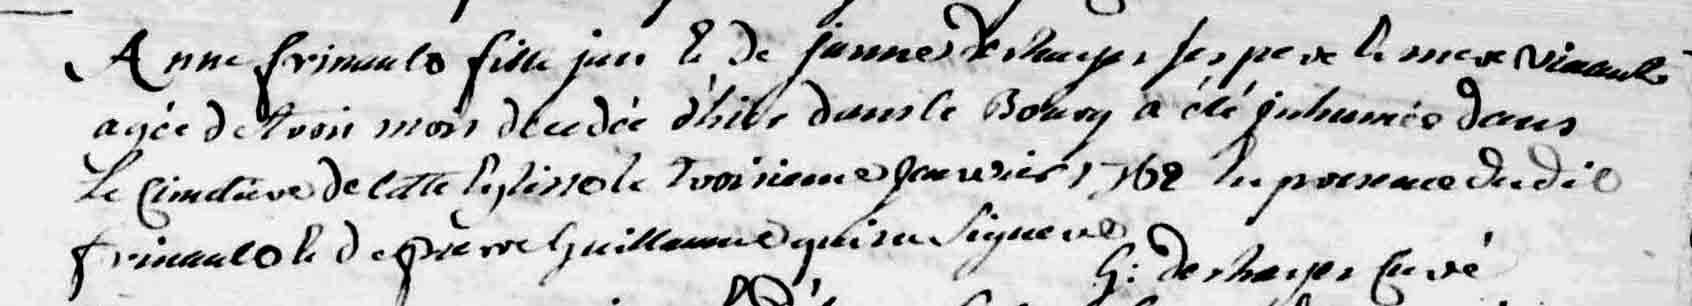 Anne frinault fille jean & de jeanne deshayes ses pere & mere
agée de trois mois decedée d'hier dans le Bourg a été inhumée dans
le Cimetiere de cette Eglise le troisieme janvier 1762 en presence dudit
frinault & de pierre Guillaume qui ne Signent
G: deshayes Curé